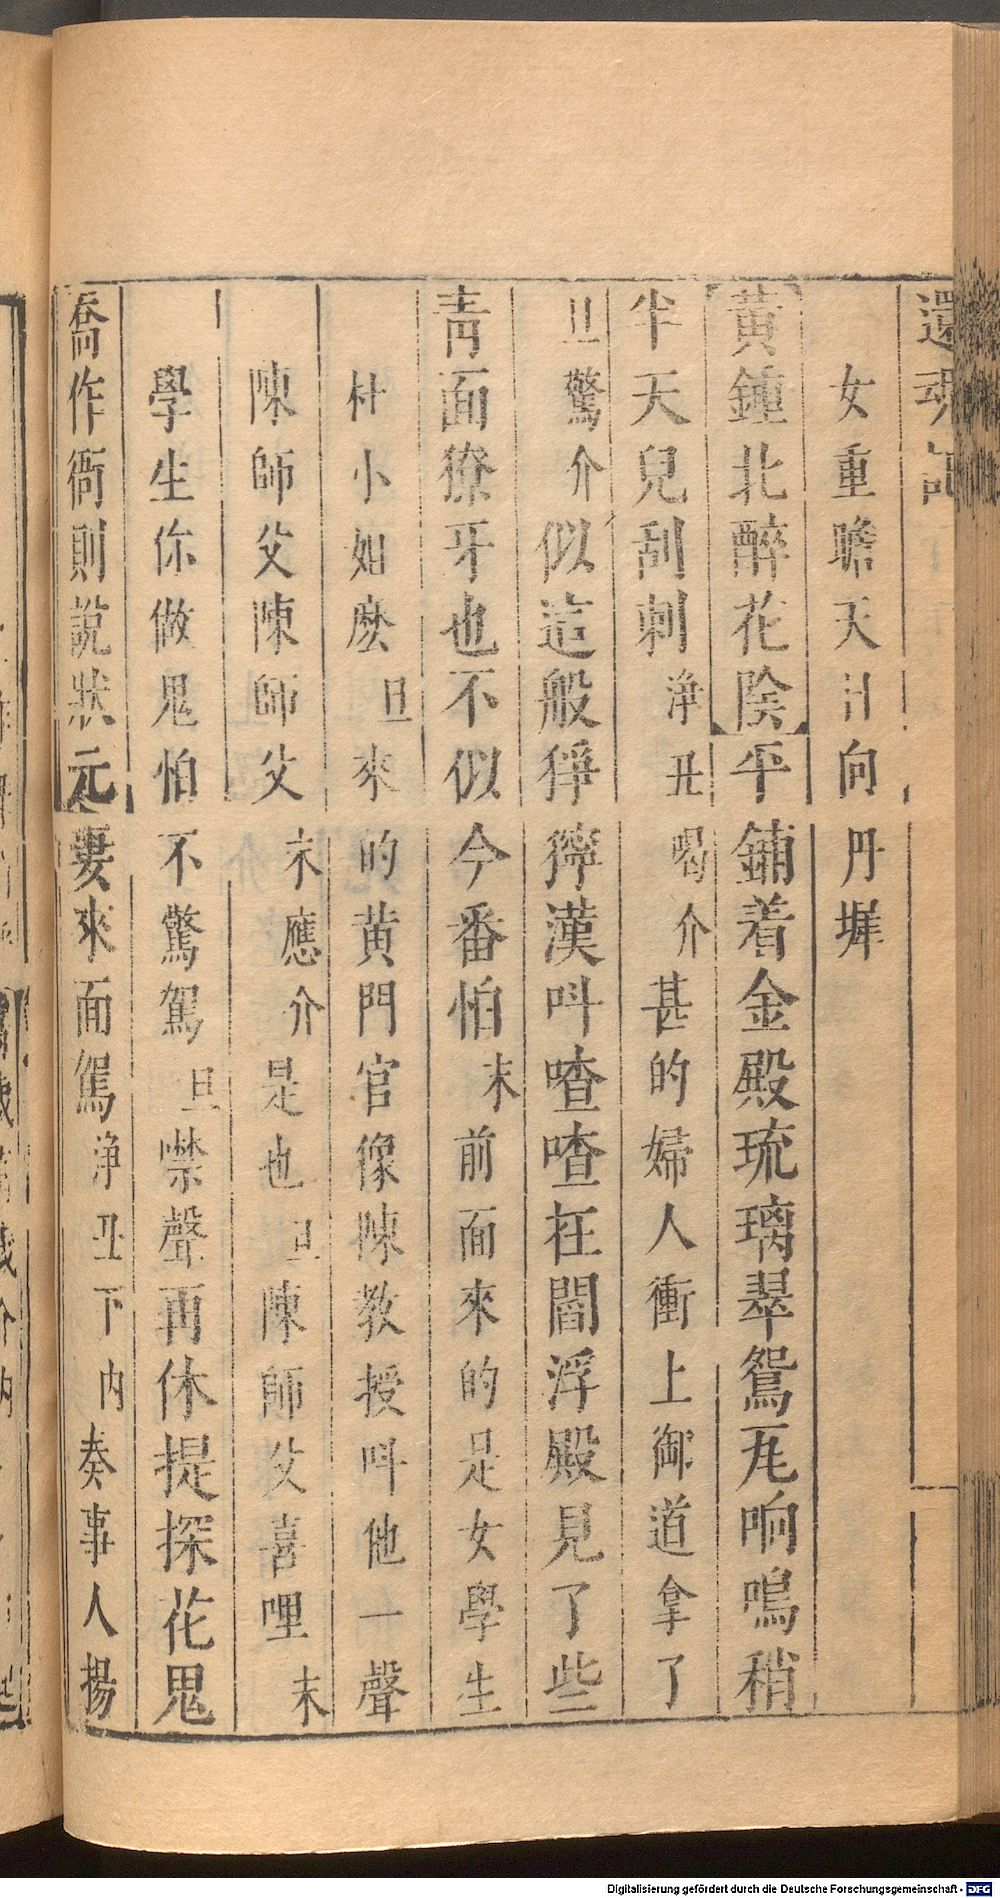 還魂記
女重瞻天日向丹墀
黃鍾北醉花陰平鋪着金殿琉璃翠鴛瓦响鳴稍
半天兒刮刺淨丑喝介甚的婦人衝上御道拿了
旦驚介似這般猙獰漢叫喳喳在閻浮殿見了些
青面獠牙也不似今番怕末前面來的是女學生
杜小姐麽旦來的黃門官像陳教授叫他一聲
陳師父陳師父末應介是也旦陳師父喜哩末
學生你做鬼怕不驚駕旦噤聲再休提探花鬼
喬作衙則說狀元妻來面駕淨丑下內奏事人揚
Digitalisierung gefördert durch die Deutsche Forschungsgemeinschaft - DFG